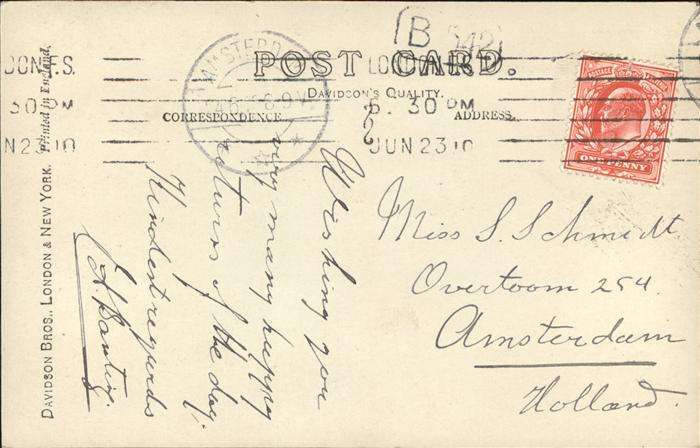 POST CARD.
DAVIDSON'S QUALITY.
CORRESPONDENCE
ADDRESS.
LONDON
5. 30 PM
JUN 23 10
30 PM
N 23 10
AMSTERD
B
ONE PENNY
Wishing you
very many happy
returns of the day.
Kindest regards
Miss S. Schmidt
Overtoom 254.
Amsterdam
Holland.
DAVIDSON BROS., LONDON & NEW YORK. Printed in England.